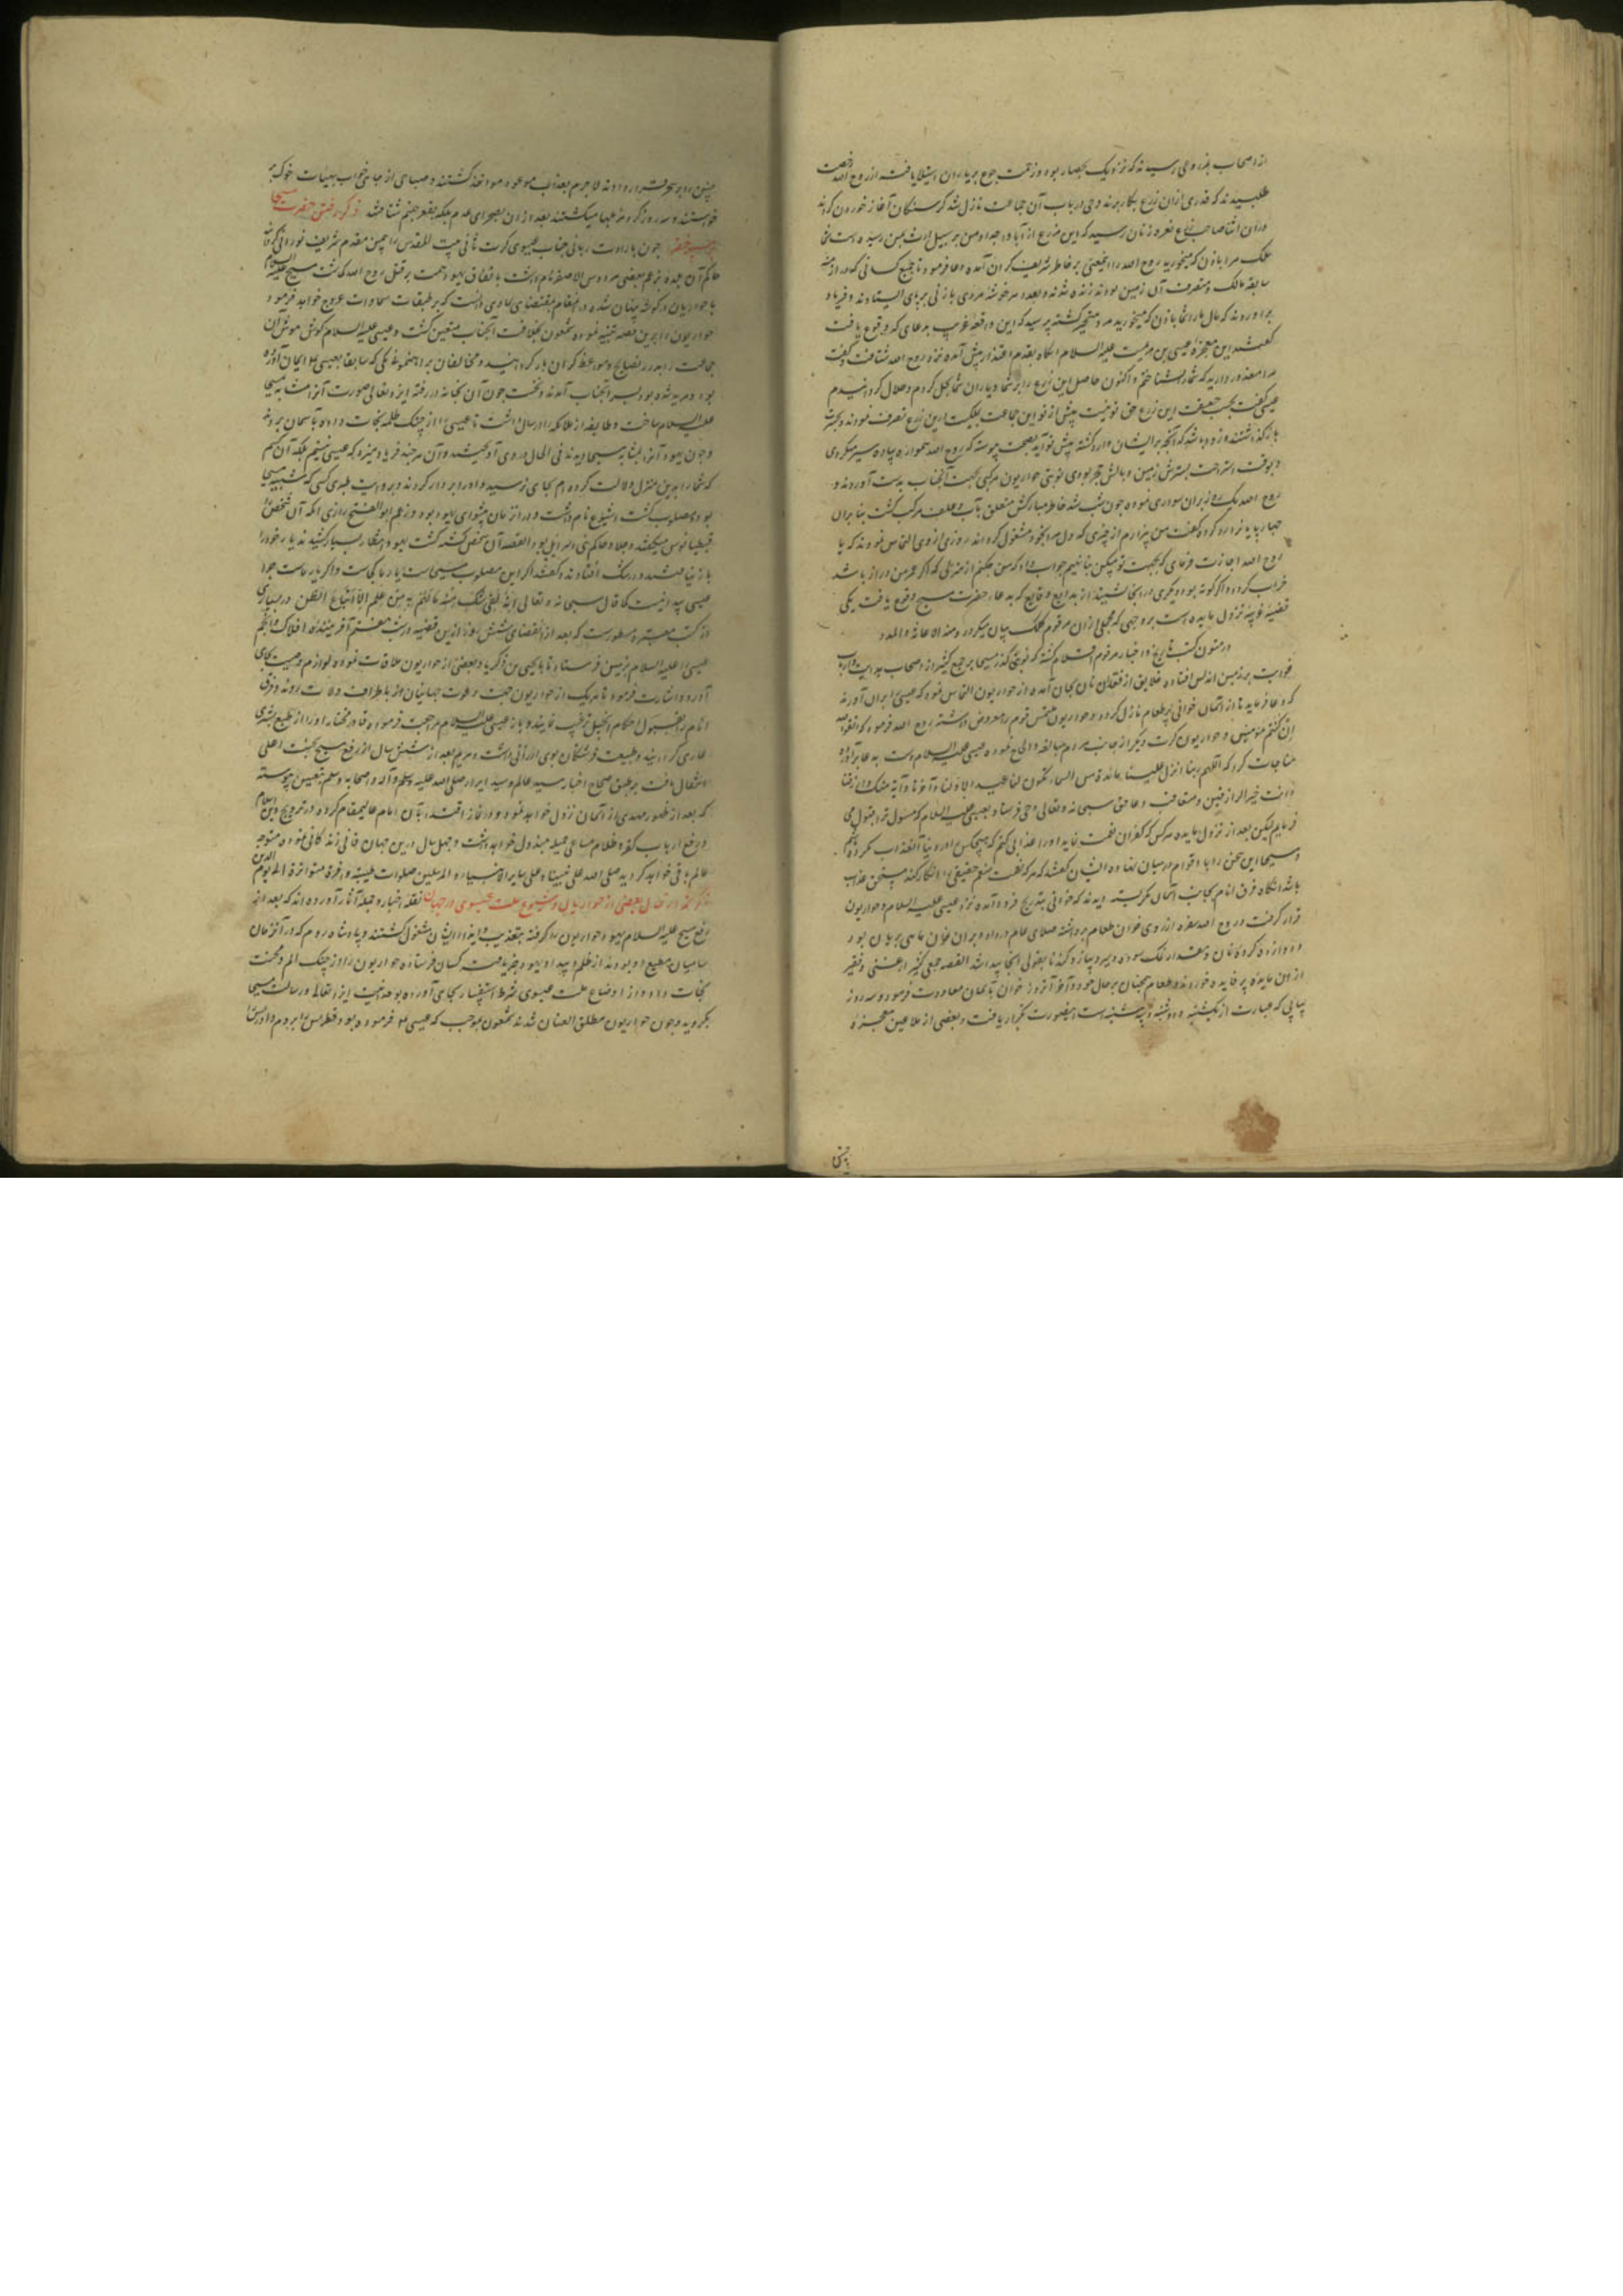 از اصحاب بذروعی رسیدند که نزدیک بحصار بود و زحمت جوع بر یاران استیلا یافته از روح الله رخصت
طلبیدند که قدری از آن زرع بکار برند وحی در باب آن جماعت نازل شد گرسنگان آغاز خوردن کردند
در آن اثنا صاحب زرع نعره زنان رسید که این مزرع از آبا و اجداد من بر سبیل ارث بمن رسیده است شما
ملک مرا باذن که میخورید روح الله را این معنی بر خاطر شریف گران آمده دعا فرمود تا جمیع کسانی که در ازمنه
سابقه مالک و متصرف آن زمین بودند زنده شدند و بعدد هر خوشه مردی یا زنی بر پای ایستادند و فریاد
برآوردند که مال ما را شما باذن که میخورید مرد متحیر گشته پرسید که این واقعه غریب بدعای که وقوع یافت
گفتند این معجزه عیسی بن مریمست علیه السلام آنگاه بقدم اعتذار پیش آمده نزد روح الله شتافت و گفت
مرا معذور دارید که شما را نشناختم و اکنون حاصل این زرع را بر شما و یاران شما بحل کردم و حلال گردانیدم
عیسی گفت بحسب حقیقت این زرع حق تو نیست پیش از تو این جماعت بملکیت درین زرع تصرف نمودند و بحسرت
بازگذاشتند و زود باشد که آنچه بر ایشان وارد گشته پیش تو آید بصحت پیوسته که روح الله همواره پیاده سیر میکردی
و بوقت استراحت بسترش زمین و بالش حجر بودی نوبتی حواریون مرکبی بجهت آنجناب بدست آوردند و
روح الله یک روز بر آن سواری نموده چون شب شد خاطر مبارکش متعلق بآب و علف مرکب گشت بنابران
چهارپا باز رد کرده گفت من بیزارم از چیزی که دل مرا بخود مشغول گرداند روزی از وی التماس نمودند که یا
روح الله اجازت فرمای که بجهت تو مسکنی بنا نهیم جواب داد که من چکنم از منزلی که اگر عمر من دراز باشد
خراب گردد و اگر کوته بود دیگری در آنجا نشیند از بدایع وقایع که بدعاء حضرت مسیح وقوع یافت یکی
قضیه غریبه نزول مایده است بر وجهی که مجملی از آن مرقوم کلک بیان میگردد و منه الاعانه و المدد
در متون کتب تاریخ و اخبار مرقوم اقلام گشته که نوبتی گذر مسیحا بر جمع کثیر از اصحاب
خلایق از فقدان نان بجان آمده از حواریون التماس نمودند که عیسی را بران آورند
که دعا فرماید تا از آسمان خوانی پر طعام نازل گردد و حواریون ملتمس قوم را معروض داشته روح الله فرمود که اتقوا الله
ان کنتم مؤمنین و حواریون کرت دیگر از جانب مردم مبالغه و الحاح نموده عیسی علیه السلام دست بدعا برآورده
مناجات کرد که اللهم ربنا انزل علینا مائدة من السماء تکون لنا عیدا لاولنا و آخرنا و آیة منک و ارزقنا
و انت خیر الرازقین و متعاقب دعا حق سبحانه و تعالی وحی فرستاد بعیسی علیه السلام که مسئول ترا مبذول می
فرمایم لیکن بعد از نزول مایده هر کس که کفران نعمت نماید او را عذابی کنم که هیچکس را در دنیا آنعذاب نکرده باشم
و مسیحا این سخن را با اقوام درمیان نهاده ایشان گفتند که هر که نعمت منعم حقیقی را انکار کند مستحق عذاب
باشد آنگاه فرق انام بجانب آسمان نگریسته دیدند که خوانی بتدریج فرود آمده نزد عیسی علیه السلام و حواریون
قرار گرفت و روح الله سفره از روی خوان طعام برداشته صلای عام در داد و بر آن خوان ماهی بریان بود
و دوازده گرده نان و مقدار نمک سوده و سیر و پیاز و گندنا بقولی آنجا پیدا شد القصه جمعی کثیر از غنی و فقیر
از آن مایده پر فایده خوردند و طعام همچنان بر حال خود و آخر آنروز خوان بآسمان معاودت فرمود و سه روز
پیاپی که عبارت از یکشنبه و دوشنبه و سه شنبه است اینصورت تکرار یافت و بعضی از ملاعین معجزه
چنین را بر سحر قرار دادند لاجرم بعذاب موعود مواخذ گشتند و صباحی از جامه خواب بهیأت خوک بر
خواستند و سه روز گرد مزبلها میگشتند بعد از آن بصحرای عدم بلکه بقعر جهنم شتافتند ذکر رفتن حضرت مسیحا
چون بارادت ربانی جناب عیسوی کرت ثانی بیت المقدس را بیمن مقدم شریف نورانی گردانید
حاکم آن بلده بزعم بعضی هردوس الاصغر نام داشت باتفاق یهود همت بر قتل روح الله گماشت مسیح علیه السلام
با حواریان در گوشه پنهان شده در آنمقام بمقتضای وحی سماوی دانست که بر طبقات سماوات عروج خواهد فرمود
حواریون را برین قصه تنبیه نموده شمعون بخلافت آنجناب متعین گشت و عیسی علیه السلام گوش هوش آن
جماعت را بدرر نصایح و مواعظ گران بار گردانید و مخالفان براهنمونی یکی که سابقا بعیسی ع ایمان آورده
بود و مرتد شده بود بسر آنجناب آمدند و نخست چون آن بخانه در رفته ایزد تعالی صورت آنرا مشابه مسیحا
علیه السلام ساخت و طایفه از ملائکه را ارسال داشت تا عیسی را از چنگ ظلمه نجات داده بآسمان بردند
و چون یهود آنرا بمشابه مسیحا دیدند فی الحال در وی آویختند و آن هر چند فریاد میزد که عیسی نیستم بلکه آن کسم
که شما را بدین منزل دلالت کرده ام بجای نرسید و او را بر دار کردند و بروایت طبری کسی که شبیه مسیحا
بود و مصلوب گشت اشیوع نام داشت و در آنزمان پیشوای یهود بود و بزعم ابوالفتح رازی آنکه آن شخص را
ططیانوس میگفتند و جلاد حاکم بنی اسرائیل بود القصه آن شخص کشته گشت یهود انتظار بسیار کشیدند یار خود را
باز نیافتند و در شک افتادند و گفتند اگر این مصلوب مسیحاست یار ما کجاست و اگر یار ماست جرا
عیسی پیدا نیست کما قال سبحانه و تعالی لفی شک منه ما لهم به من علم الا اتباع الظن و در بسیاری
از کتب معتبره مسطورست که بعد از انقضای شش روز ازین قضیه در شب هفتم آفریننده افلاک و انجم
عیسی را علیه السلام بزمین فرستاد تا با یحیی بن زکریا و بعضی از حواریون ملاقات نموده لوازم وصیت بجای
آورد و اشارت فرمود تا هر یک از حواریون جهت دعوت جهانیان باطراف ولایت روند و فرق
انام را بقبول احکام انجیل ترغیب نمایند و باز عیسی علیه السلام مراجعت فرموده قادر مختار او را از طبع بشری
عاری گردانید و طبیعت فرشتگان بوی ارزانی داشت و مریم بعد از شش سال از رفع مسیح بجنت اعلی
انتقال یافت بر طبق صحاح اخبار سید عالم و سید ابرار صلی الله علیه و آله و اصحابه و سلم بتعیین پیوسته
که بعد از ظهور مهدی از آسمان نزول خواهد نمود و در نماز اقتدا بآن امام عالیمقام کرده در ترویج دین اسلام
و رفع ارباب کفر و ظلام مساعی جمیله مبذول خواهد داشت و چهل سال درین جهان فانی زندگانی نموده متوجه
عالم باقی خواهد گردید صلی الله علی نبینا و علی سایر الانبیاء و المرسلین صلوات طیبة وافرة متواترة الی یوم الدین
ذکر انتقال بعضی از حواریان و شیوع ملت عیسوی در جهان نقله اخبار و جمله آثار آورده اند که بعد از
رفع مسیح علیه السلام یهود حواریون را گرفته بتعذیب و ایذاء ایشان مشغول گشتند و پادشاه روم که در آنزمان
شامیان مطیع او بودند از ظلم و بیداد یهود خبر یافت کسان فرستاده حواریون را از چنگ الم و محنت
نجات داد و از اوضاع ملت عیسوی شرط استفسار بجای آورده بوحدانیت ایزد تعالی و رسالت مسیحا
بگروید و چون حواریون مطلق العنان شدند شمعون بموجب که عیسی ع فرموده بود فطرس را بروم و اندریس را